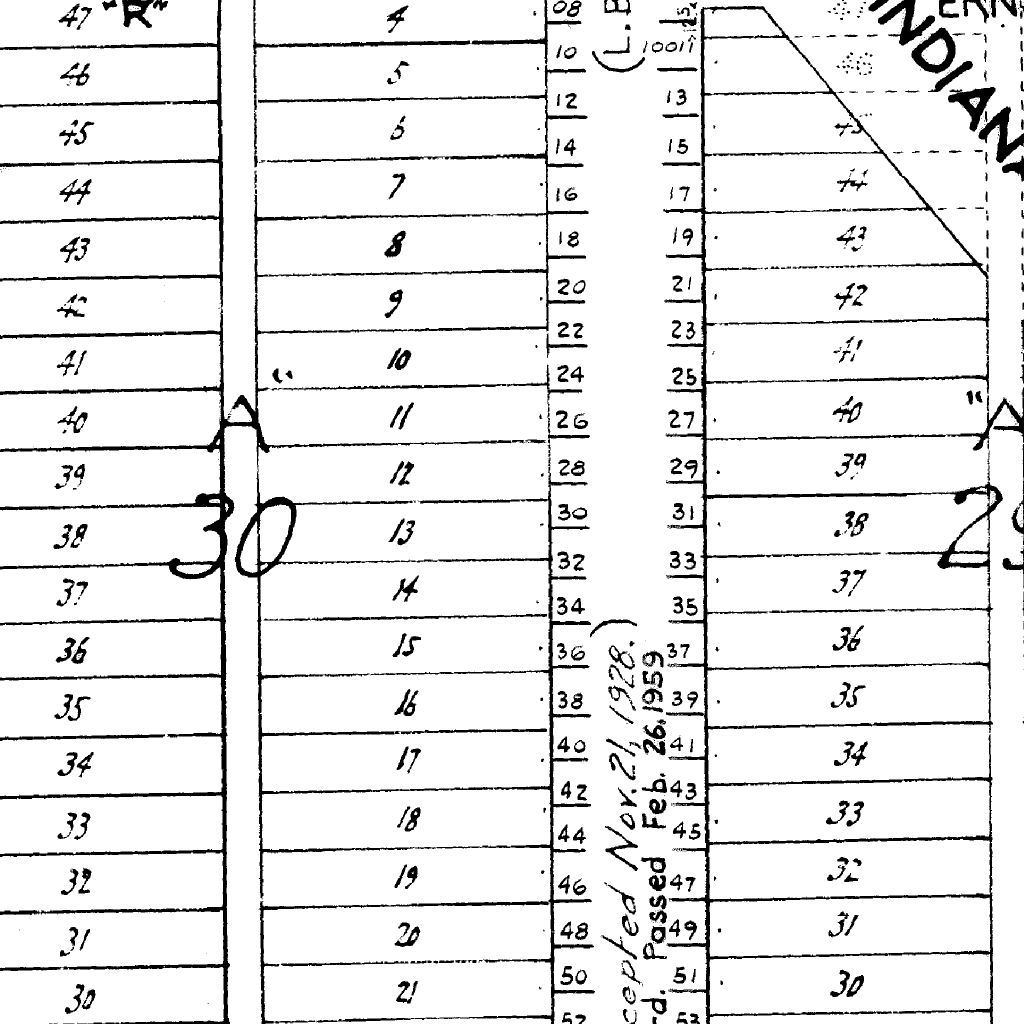 47 "R"
46
45
44
43
42
41
40
39
38
37
36
35
34
33
32
31
30
"A
30
4
5
6
7
8
9
10
11
12
13
14
15
16
17
18
19
20
21
08
10
12
14
16
18
20
22
24
26
28
30
32
34
36
38
40
42
44
46
48
50
52
(L.
Nov. 21, 1928.)
Passed Feb. 26, 1959
13
15
17
19
21
23
25
27
29
31
33
35
37
39
41
43
45
47
49
51
53
47
46
45
44
43
42
41
40
39
38
37
36
35
34
33
32
31
30
"A